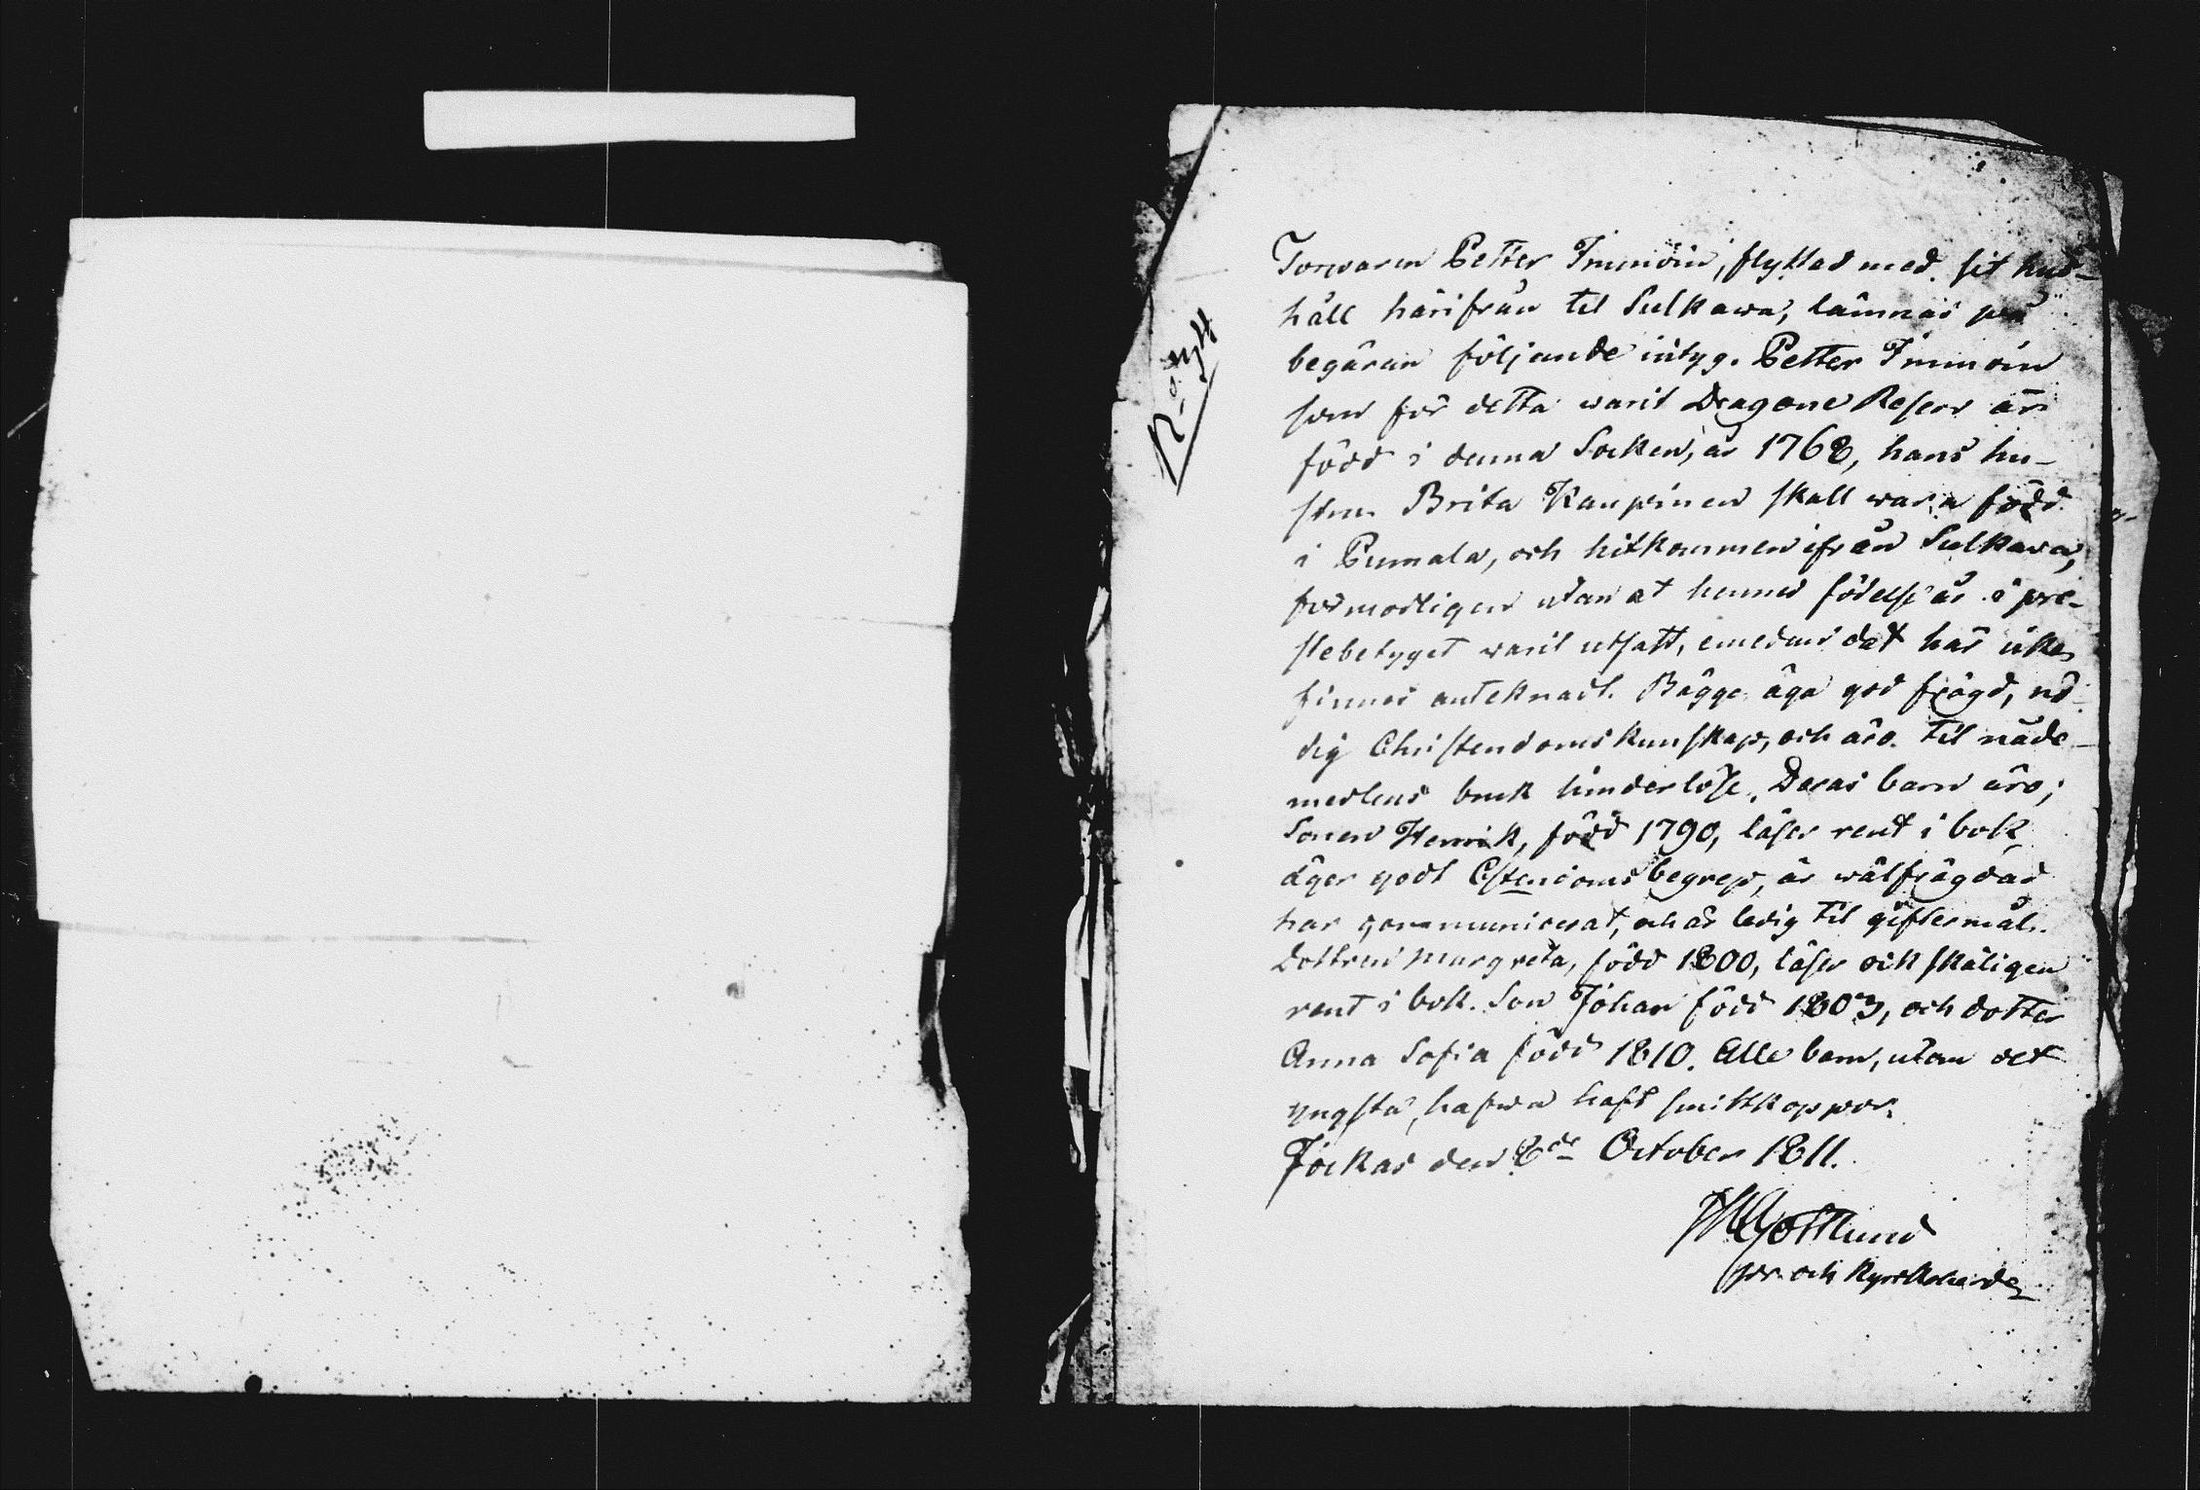 Torparen Petter Immoin, flyttad med sit hus-
håll härifrån til Sulkawa, lämnas på
begäran följande intyg. Petter Immoin
som för detta warit Dragone Reserv är
född i denna Socken, år 1768, hans hu-
stru Brita Kaupinen skall wara född
i Pumala, och hitkommen ifrån Sulkawa,
förmodligen utan at hennes födelse år i pre-
stebetyget warit utsatt, emedan det här icke
finnes antecknadt. Bägge äga god frägd, nö-
dig Christendoms kunskap, och äro til nåde-
medlens bruk hinderlöse. Deras barn äro;
Sonen Henrik, född 1790, läser rent i bok,
äger godt Chstendoms begrep, är wälfrägdad
har communicerat, och är ledig til giftermål.
Dottren Margreta, född 1800, läser ock skäligen
rent i bok. Son Johan född 1803, och dotter
Anna Sofia född 1810. Alle barn, utan det
yngsta, hafwa haft smittkoppor.
Jockas den 8de October 1811.
Gottlund
och Kyrkoherde